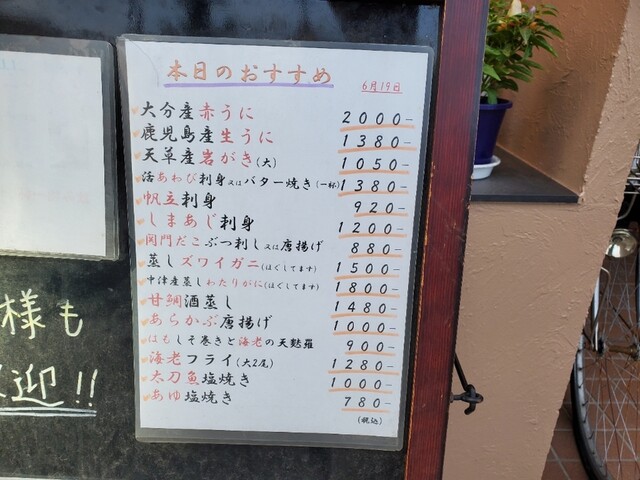 本日のおすすめ
6月19日
大分産赤うに 2000-
鹿児島産生うに 1380-
天草産岩がき(大) 1050-
活あわび刺身又はバター焼き(一杯) 1380-
帆立刺身 920-
しまあじ刺身 1200-
関門だこぶつ刺し又は唐揚げ 880-
蒸しズワイガニ(ほぐしてます) 1500-
中津産蒸しわたりがに(ほぐしてます) 1800-
甘鯛酒蒸し 1480-
あらかぶ唐揚げ 1000-
はもしそ巻きと海老の天麩羅 900-
海老フライ(大2尾) 1280-
太刀魚塩焼き 1000-
あゆ塩焼き 780-
(税込)
様も
迎!!